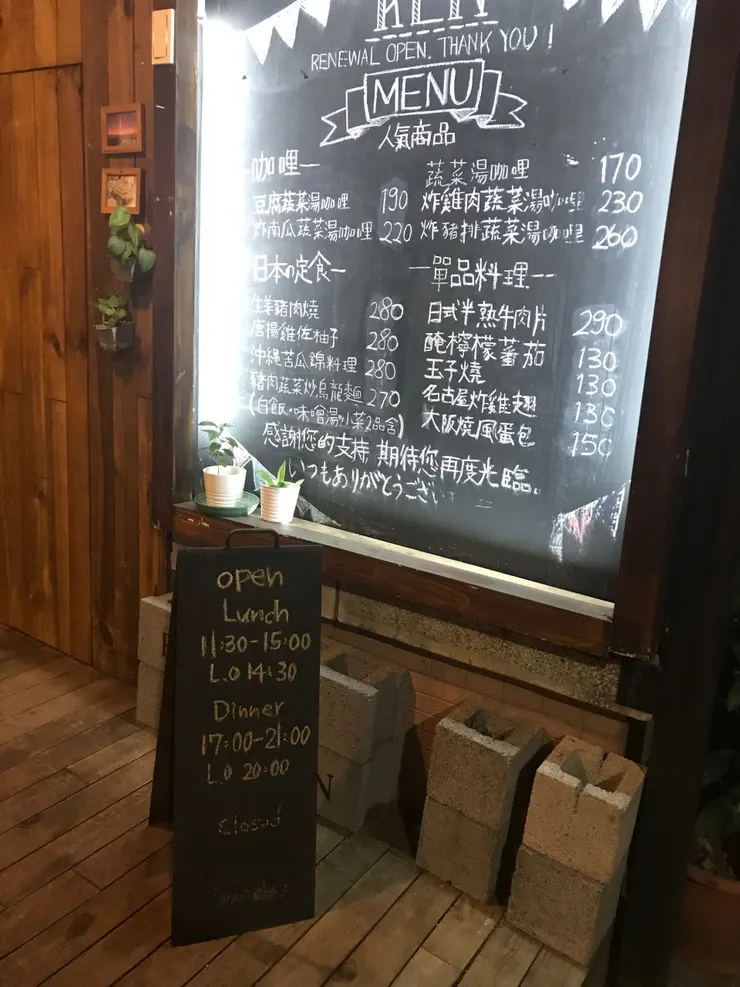 KEN
RENEWAL OPEN. THANK YOU!
MENU
人氣商品
咖哩
豆腐蔬菜湯咖哩 190
炸南瓜蔬菜湯咖哩 220
蔬菜湯咖哩 170
炸雞肉蔬菜湯咖哩 230
炸豬排蔬菜湯咖哩 260
日本の定食
生姜豬肉燒 280
唐揚雞佐柚子 280
沖縄苦瓜錦料理 280
豬肉蔬菜炒烏龍麵 270
(白飯・味噌湯・小菜2品含)
單品料理
日式半熟牛肉片 290
醃檸檬蕃茄 130
玉子燒 130
名古屋炸雞翅 130
大阪燒風蛋包 150
感謝您的支持 期待您再度光臨.
いつもありがとうござい
open
Lunch
11:30-15:00
L.O 14:30
Dinner
17:00-21:00
L.O 20:00
closed